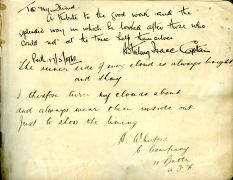 To My Friend.
A tribute to the good work and the
splendid way in which he looked after those who
could not at the time help themselves
Captain
The inner side of every cloud is always bright
and shiny
I therefore turn my clouds about
and always wear them inside out
Just to show the lining
C Company
A.I.F